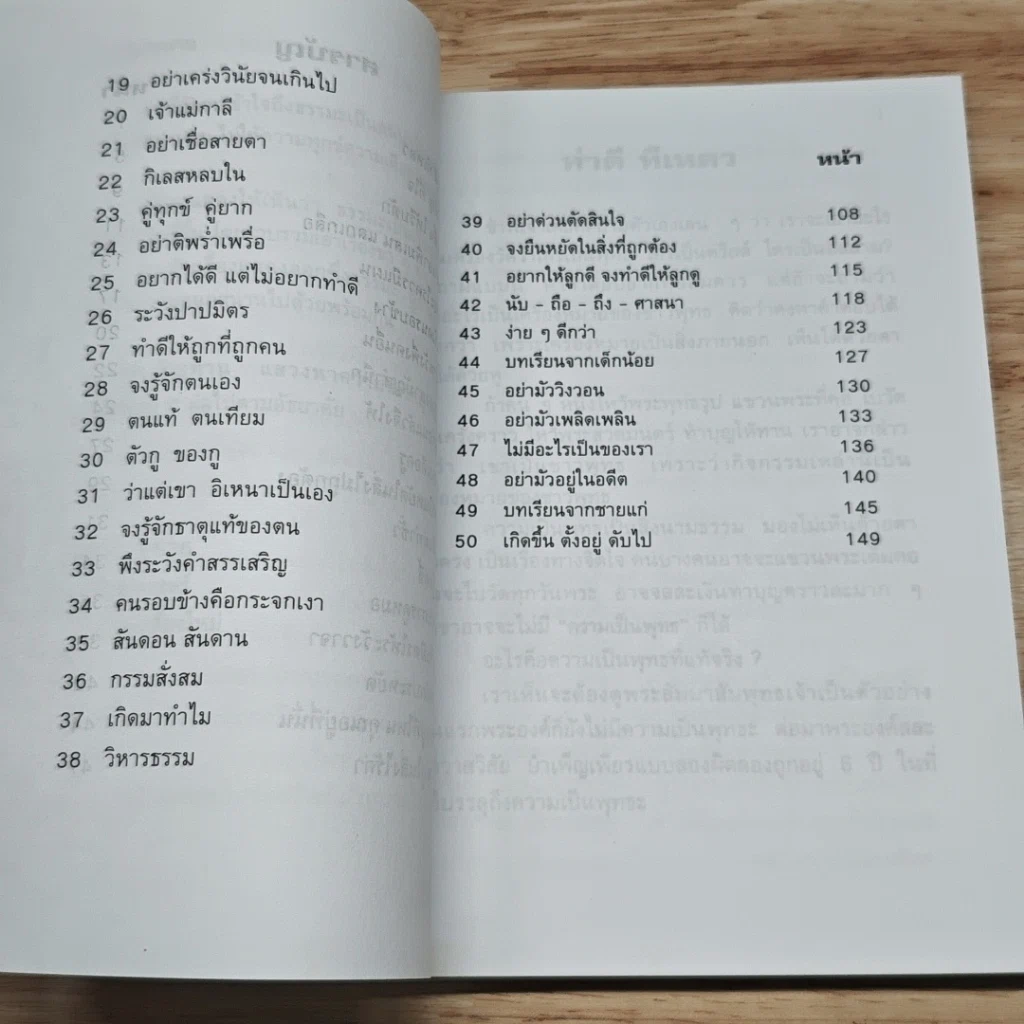 19 อย่าเคร่งวินัยจนเกินไป
20 เจ้าแม่กาลี
21 อย่าเชื่อสายตา
22 กิเลสหลบใน
23 คู่ทุกข์ คู่ยาก
24 อย่าติพร่ำเพรื่อ
25 อยากได้ดี แต่ไม่อยากทำดี
26 ระวังปาปมิตร
27 ทำดีให้ถูกที่ถูกคน
28 จงรู้จักตนเอง
29 ตนแท้ ตนเทียม
30 ตัวกู ของกู
31 ว่าแต่เขา อิเหนาเป็นเอง
32 จงรู้จักธาตุแท้ของตน
33 พึงระวังคำสรรเสริญ
34 คนรอบข้างคือกระจกเงา
35 สันดอน สันดาน
36 กรรมสั่งสม
37 เกิดมาทำไม
38 วิหารธรรม
หน้า
39 อย่าด่วนตัดสินใจ 108
40 จงยืนหยัดในสิ่งที่ถูกต้อง 112
41 อยากให้ลูกดี จงทำดีให้ลูกดู 115
42 นับ - ถือ - ถึง - ศาสนา 118
43 ง่าย ๆ ดีกว่า 123
44 บทเรียนจากเด็กน้อย 127
45 อย่ามัววิงวอน 130
46 อย่ามัวเพลิดเพลิน 133
47 ไม่มีอะไรเป็นของเรา 136
48 อย่ามัวอยู่ในอดีต 140
49 บทเรียนจากชายแก่ 145
50 เกิดขึ้น ตั้งอยู่ ดับไป 149